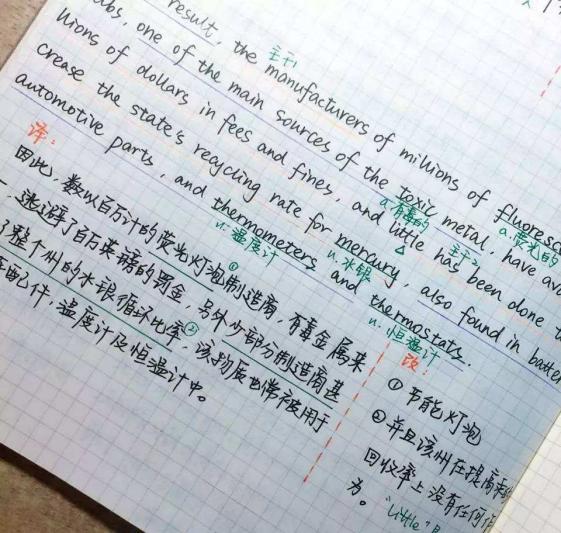 result, the manufacturers of millions of fluoresc
主干1
bs, one of the main sources of the toxic metal, have avo
a.有毒的
a.荧光的
llions of dollars in fees and fines, and little has been done t
主干2
crease the state's recycling rate for mercury, also found in batte
n.水银
automotive parts, and thermometers and thermostats.
n.温度计
n.恒温计
译:
因此,数以百万计的荧光灯泡制造商,有毒金属来
①
一,逃避了百万英镑的罚金,另外少部分制造商甚
了整个州的水银循环比率,该物质也常被用于
②
配件,温度计及恒温计中。
改:
①节能灯泡
②并且该州在提高
回收率上没有任何
为。
"little"